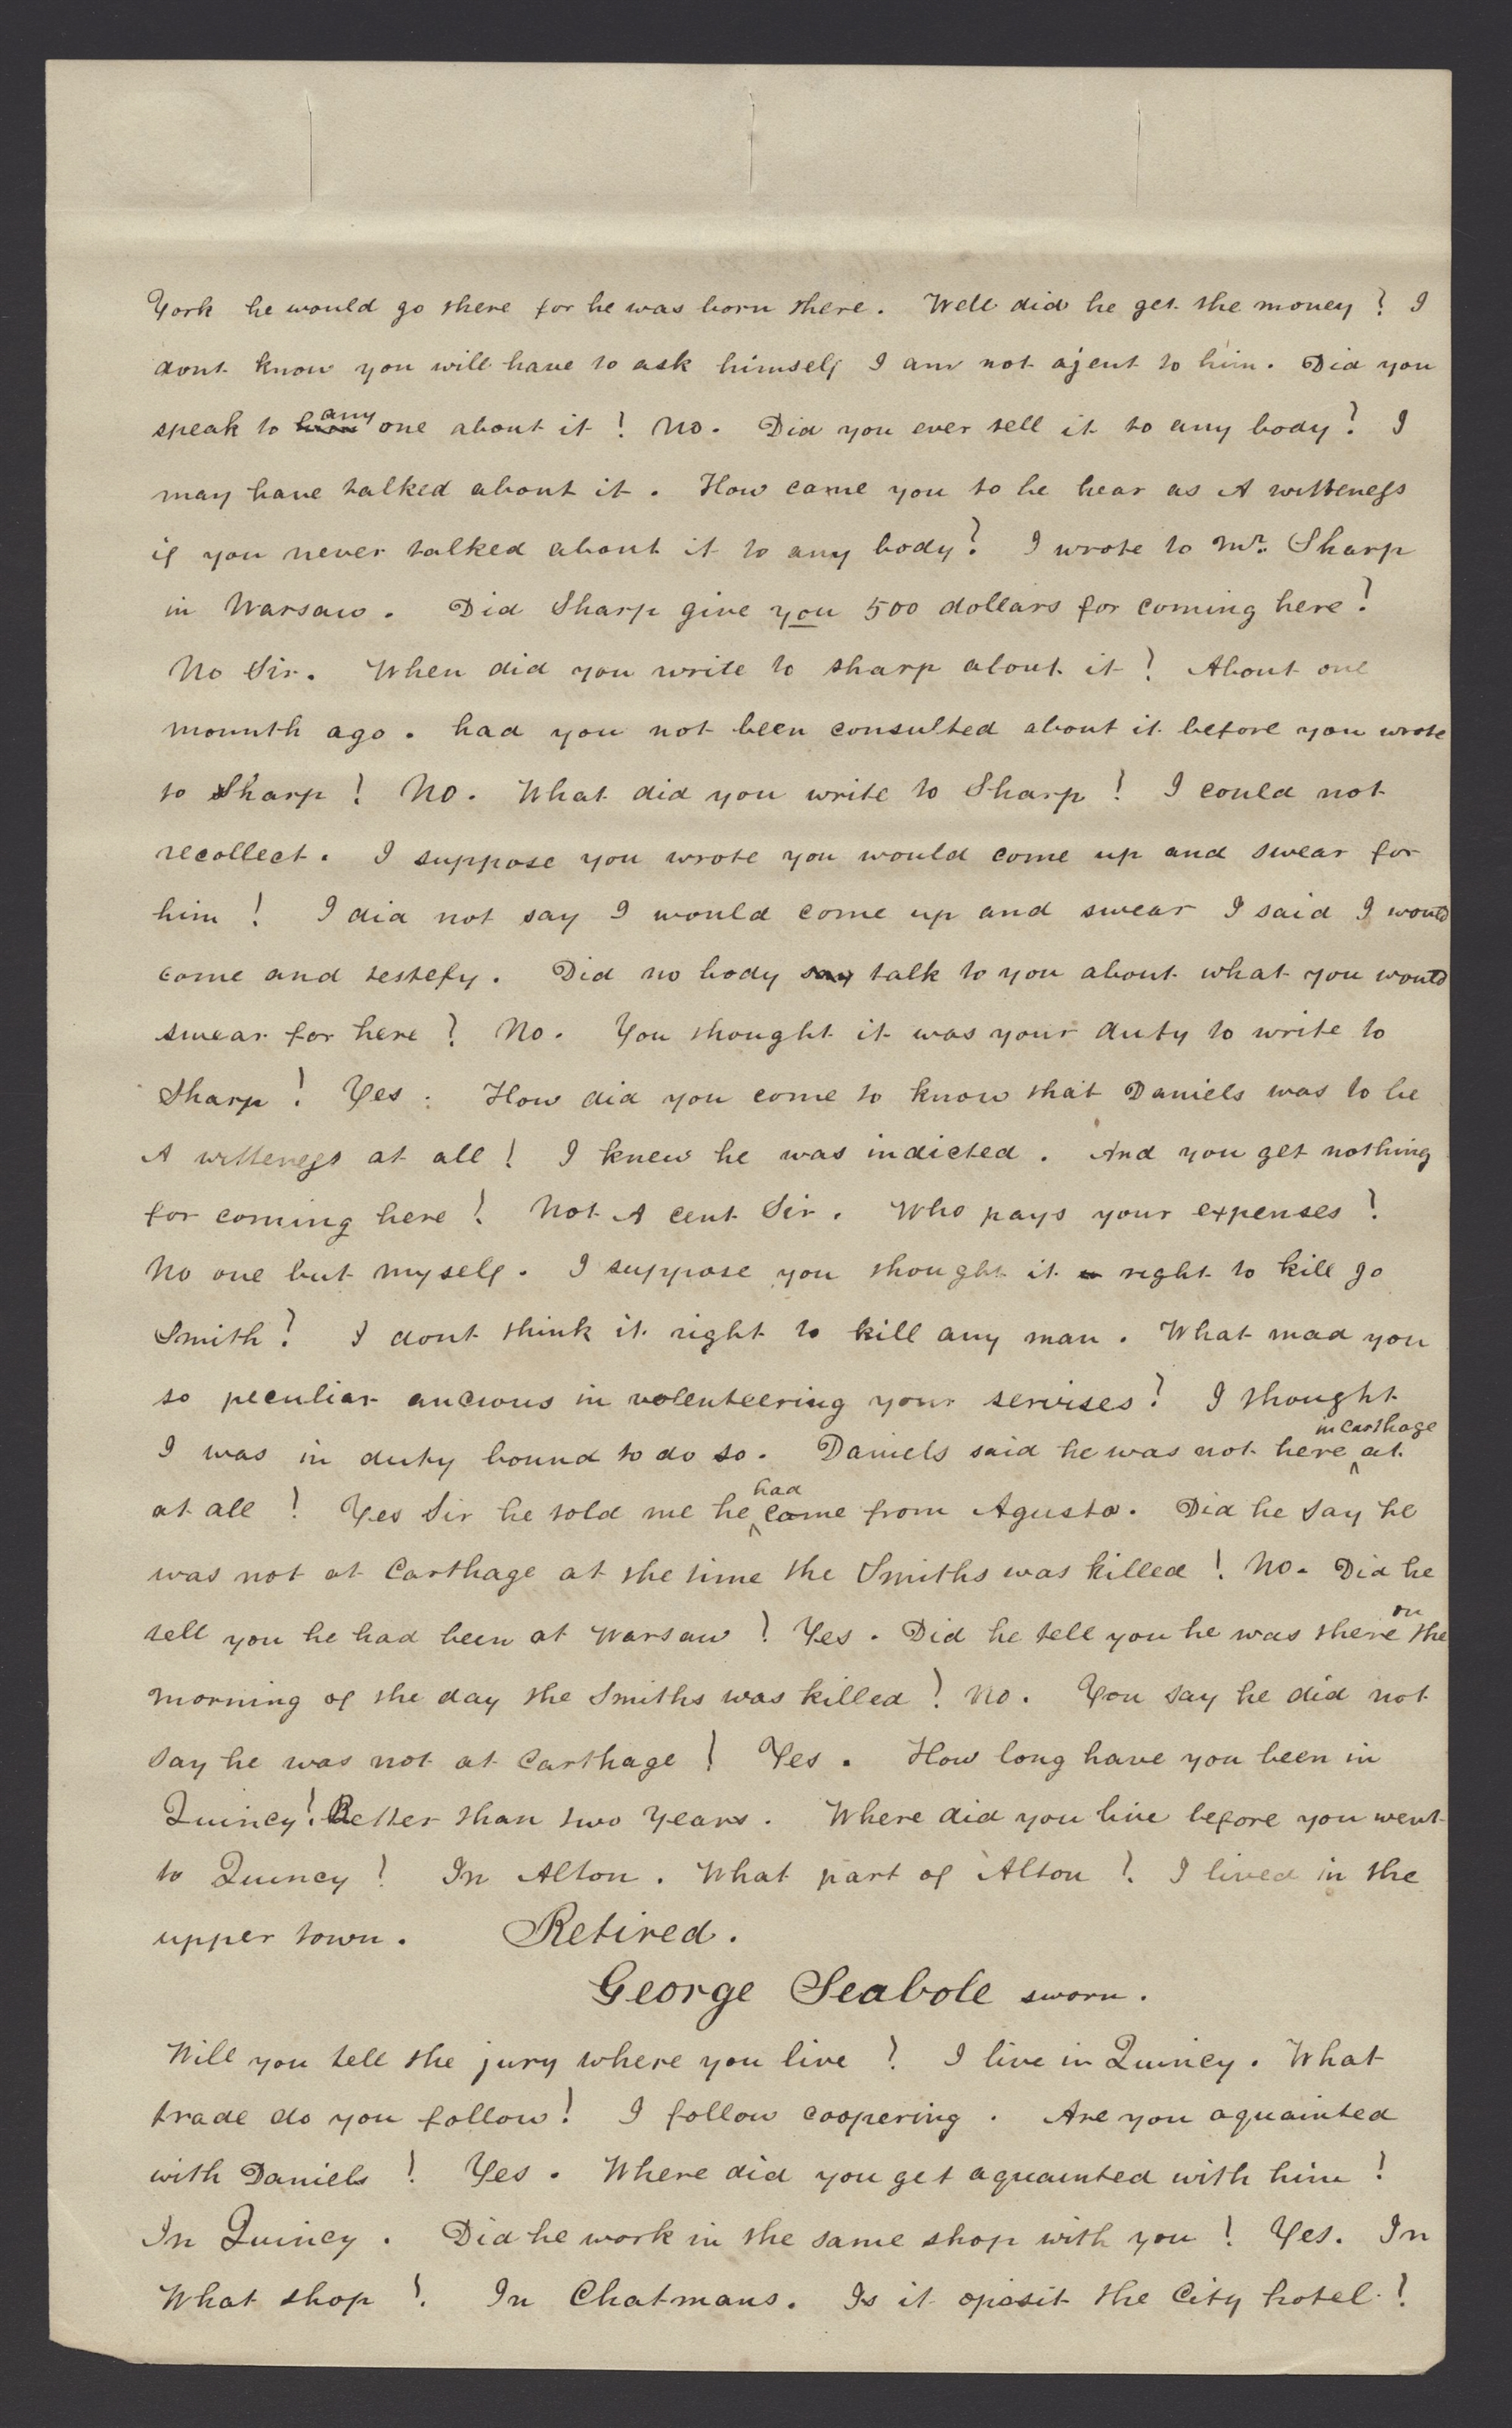 York he would go there for he was born there. Well did he get the money? I
dont know you will have to ask himself I am not ajent to him. Did you
speak to any one about it? No. Did you ever tell it to any body? I
may have talked about it. How came you to be hear as A witteness
if you never talked about it to any body? I wrote to Mr. Sharp
in Warsaw. Did Sharp give you 500 dollars for coming here?
No Sir. When did you write to sharp about it? About one
mounth ago. had you not been consulted about it before you wrote
to Sharp? No. What did you write to Sharp? I could not
recollect. I suppose you wrote you would come up and swear for
him? I did not say I would come up and swear I said I would
come and testefy. Did no body say talk to you about what you would
swear for here? No. You thought it was your duty to write to
Sharp? Yes. How did you come to know that Daniels was to be
A witteness at all? I knew he was indicted. And you get nothing
for coming here? Not A cent Sir. Who pays your expenses?
No one but myself. I suppose you thought it right to kill Jo
Smith? I dont think it right to kill any man. What mad you
so peculiar ancious in volenteering your servises? I thought
I was in duty bound to do so. Daniels said he was not here in Carthage at
at all? Yes Sir he told me he had come from Agusta. Did he say he
was not at Carthage at the time the Smiths was killed? No. Did he
tell you he had been at Warsaw? Yes. Did he tell you he was there on the
morning of the day the Smiths was killed? No. You say he did not
say he was not at Carthage? Yes. How long have you been in
Quincy? Better than two Years. Where did you live before you went
to Quincy? In Alton. What part of Alton? I lived in the
upper town. Retired.
George Seabole sworn.
Will you tell the jury where you live? I live in Quincy. What
trade do you follow? I follow coopering. Are you aquainted
with Daniels? Yes. Where did you get aquainted with him?
In Quincy. Did he work in the same shop with you? Yes. In
What shop? In Chatmans. Is it oposit the City hotel?